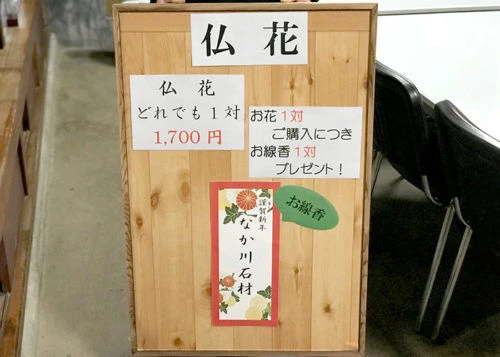 仏花
仏花
どれでも1対
1,700円
お花1対
ご購入につき
お線香1対
プレゼント!
お線香
謹賀新年
なか川石材